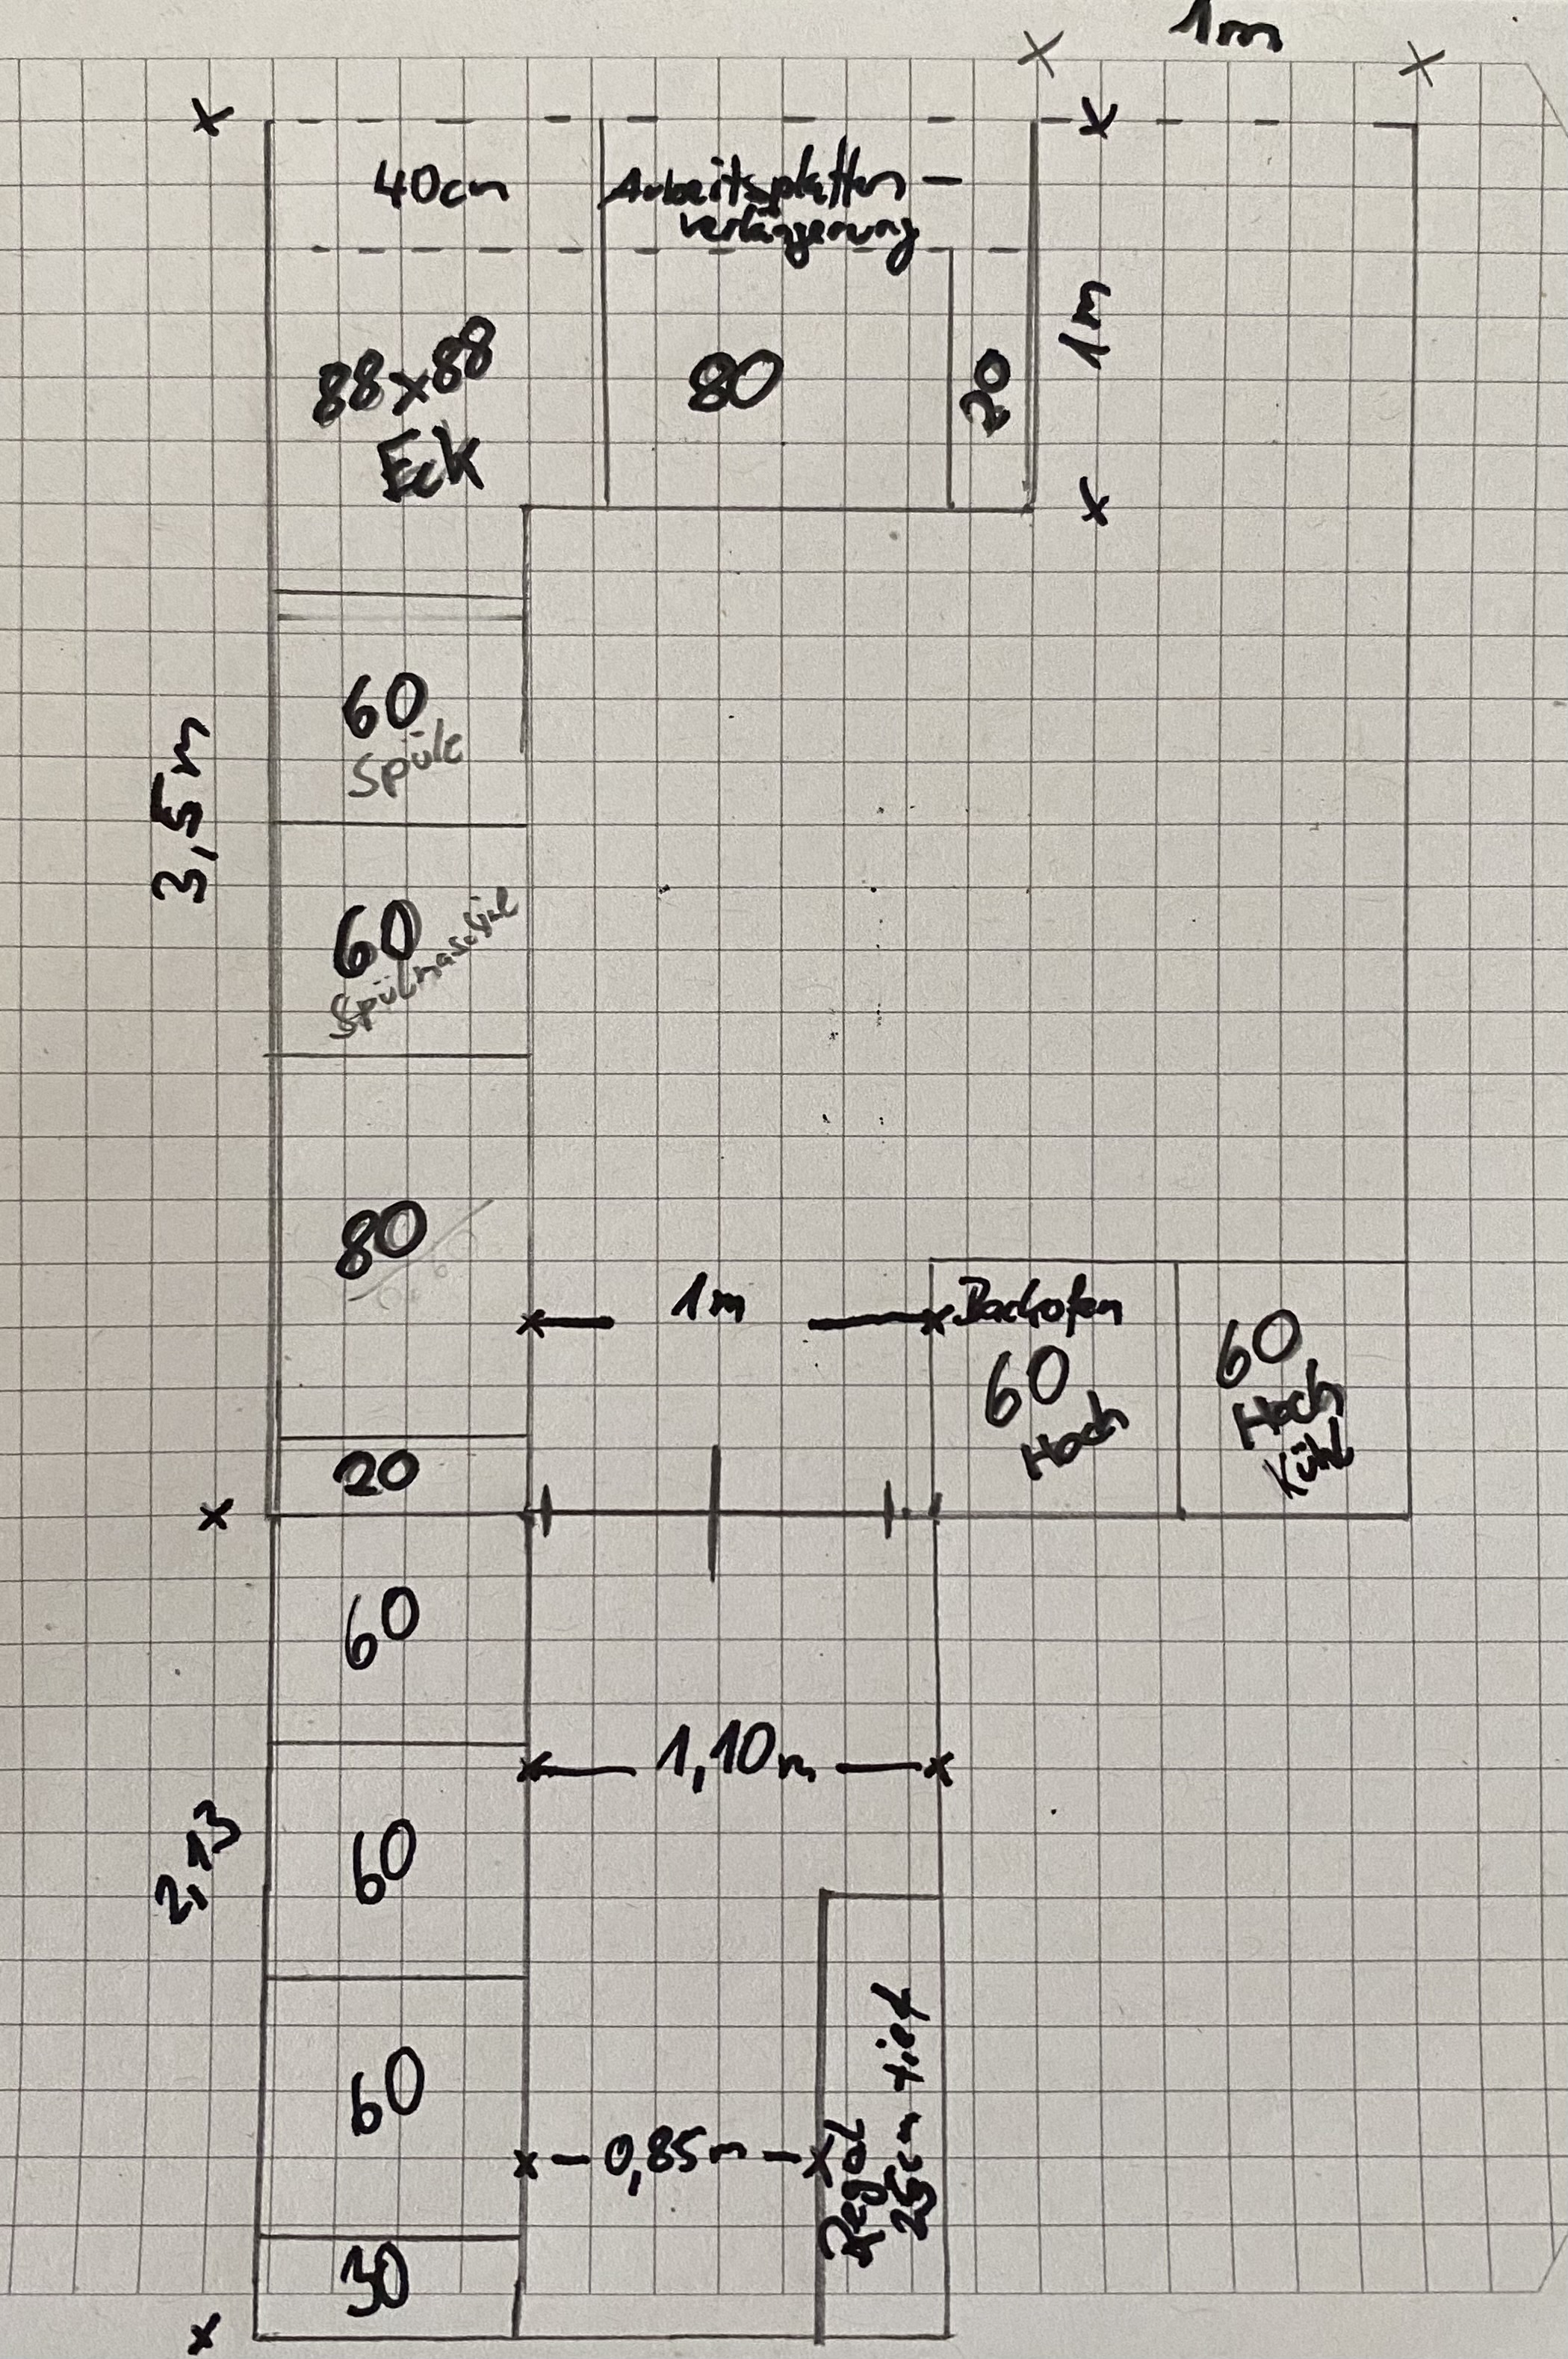 1m
40cm
Arbeitsplatten-
verlängerung
88x88
Eck
80
20
1m
60
Spüle
3,5m
60
Spülmaschine
80
1m
Backofen
60
Hoch
60
Hoch
Kühl
20
60
1,10m
60
2,13
60
0,85m
Regal
25cm tief
30